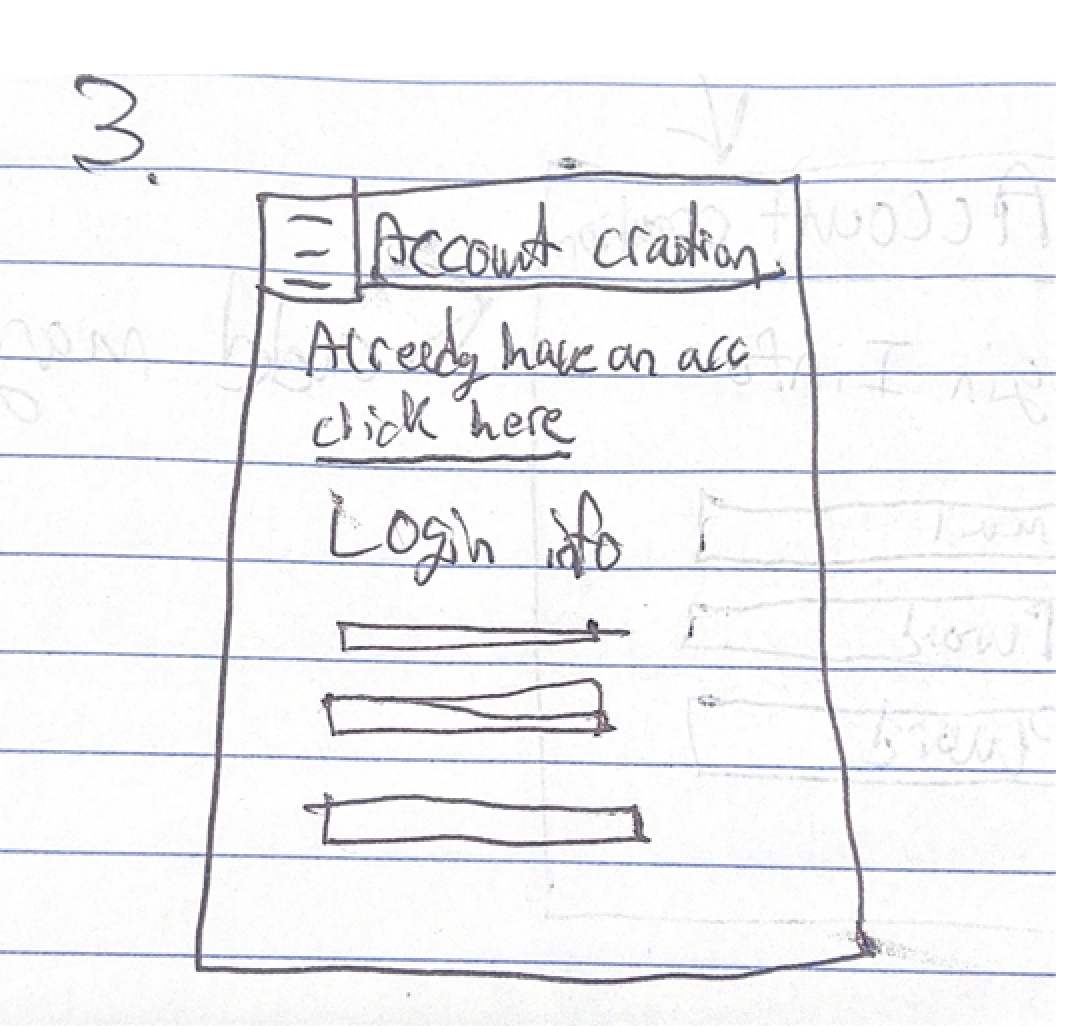 3.
Account craation
Alreedy have an acc
click here
Login info